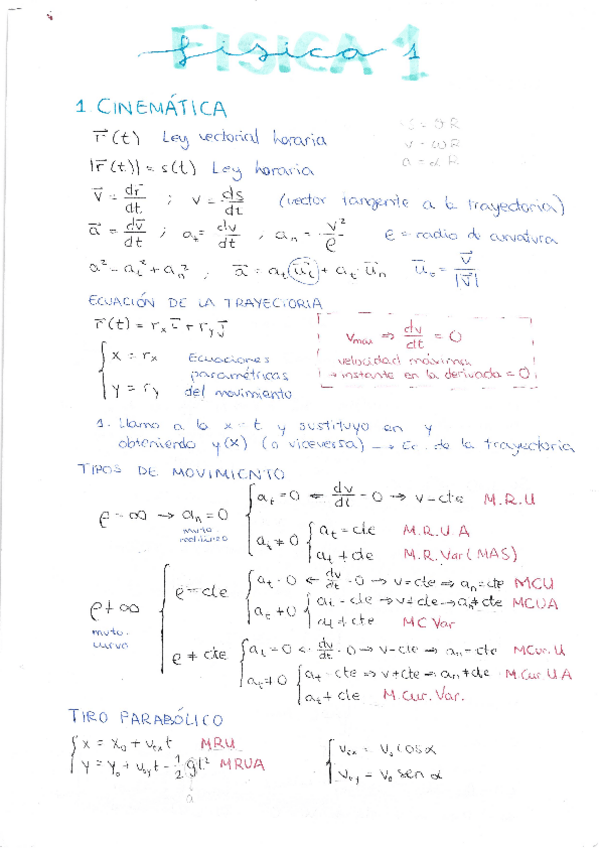 FISICA 1
fisica 1
1. CINEMÁTICA
r⃗(t) Ley vectorial horaria
s = θR
|r⃗(t)| = s(t) Ley horaria
v = ωR
a = αR
v⃗ = dr⃗/dt ; v = ds/dt (vector tangente a la trayectoria)
a⃗ = dv⃗/dt ; a_t = dv/dt , a_n = v²/ρ ρ = radio de curvatura
a² = a_t² + a_n² ; a⃗ = a_t u⃗_t + a_t u⃗_n u⃗_o = v⃗/|v⃗|
ECUACIÓN DE LA TRAYECTORIA
r⃗(t) = r_x i⃗ + r_y j⃗
v_max ⇒ dv/dt = 0
velocidad máxima
→ instante en la derivada = 0
x = r_x Ecuaciones
paramétricas
y = r_y del movimiento
1. Llamo a la x = t y sustituyo en y
obteniendo y(x) (o viceversa) → Ec. de la trayectoria
TIPOS DE MOVIMIENTO
ρ = ∞ → a_n = 0
mvto rectilíneo
a_t = 0 ← dv/dt = 0 → v = cte M.R.U
a_t ≠ 0
a_t = cte M.R.U.A
a_t ≠ cte M.R.Var (MAS)
ρ ≠ ∞
mvto. curvo
ρ = cte
a_t = 0 ← dv/dt = 0 → v = cte ⇒ a_n = cte MCU
a_t ≠ 0
a_t = cte → v ≠ cte → a_n ≠ cte MCUA
a_t ≠ cte MC Var
ρ ≠ cte
a_t = 0 ← dv/dt = 0 → v = cte → a_n = cte MCur.U
a_t ≠ 0
a_t = cte ⇒ v ≠ cte → a_n ≠ cte M.Cur.U.A
a_t ≠ cte M.Cur.Var.
TIRO PARABÓLICO
x = x_0 + v_ox t MRU
v_ox = v_o cos α
y = y_0 + v_oy t - 1/2 g t² MRUA
v_oy = v_o sen α
a